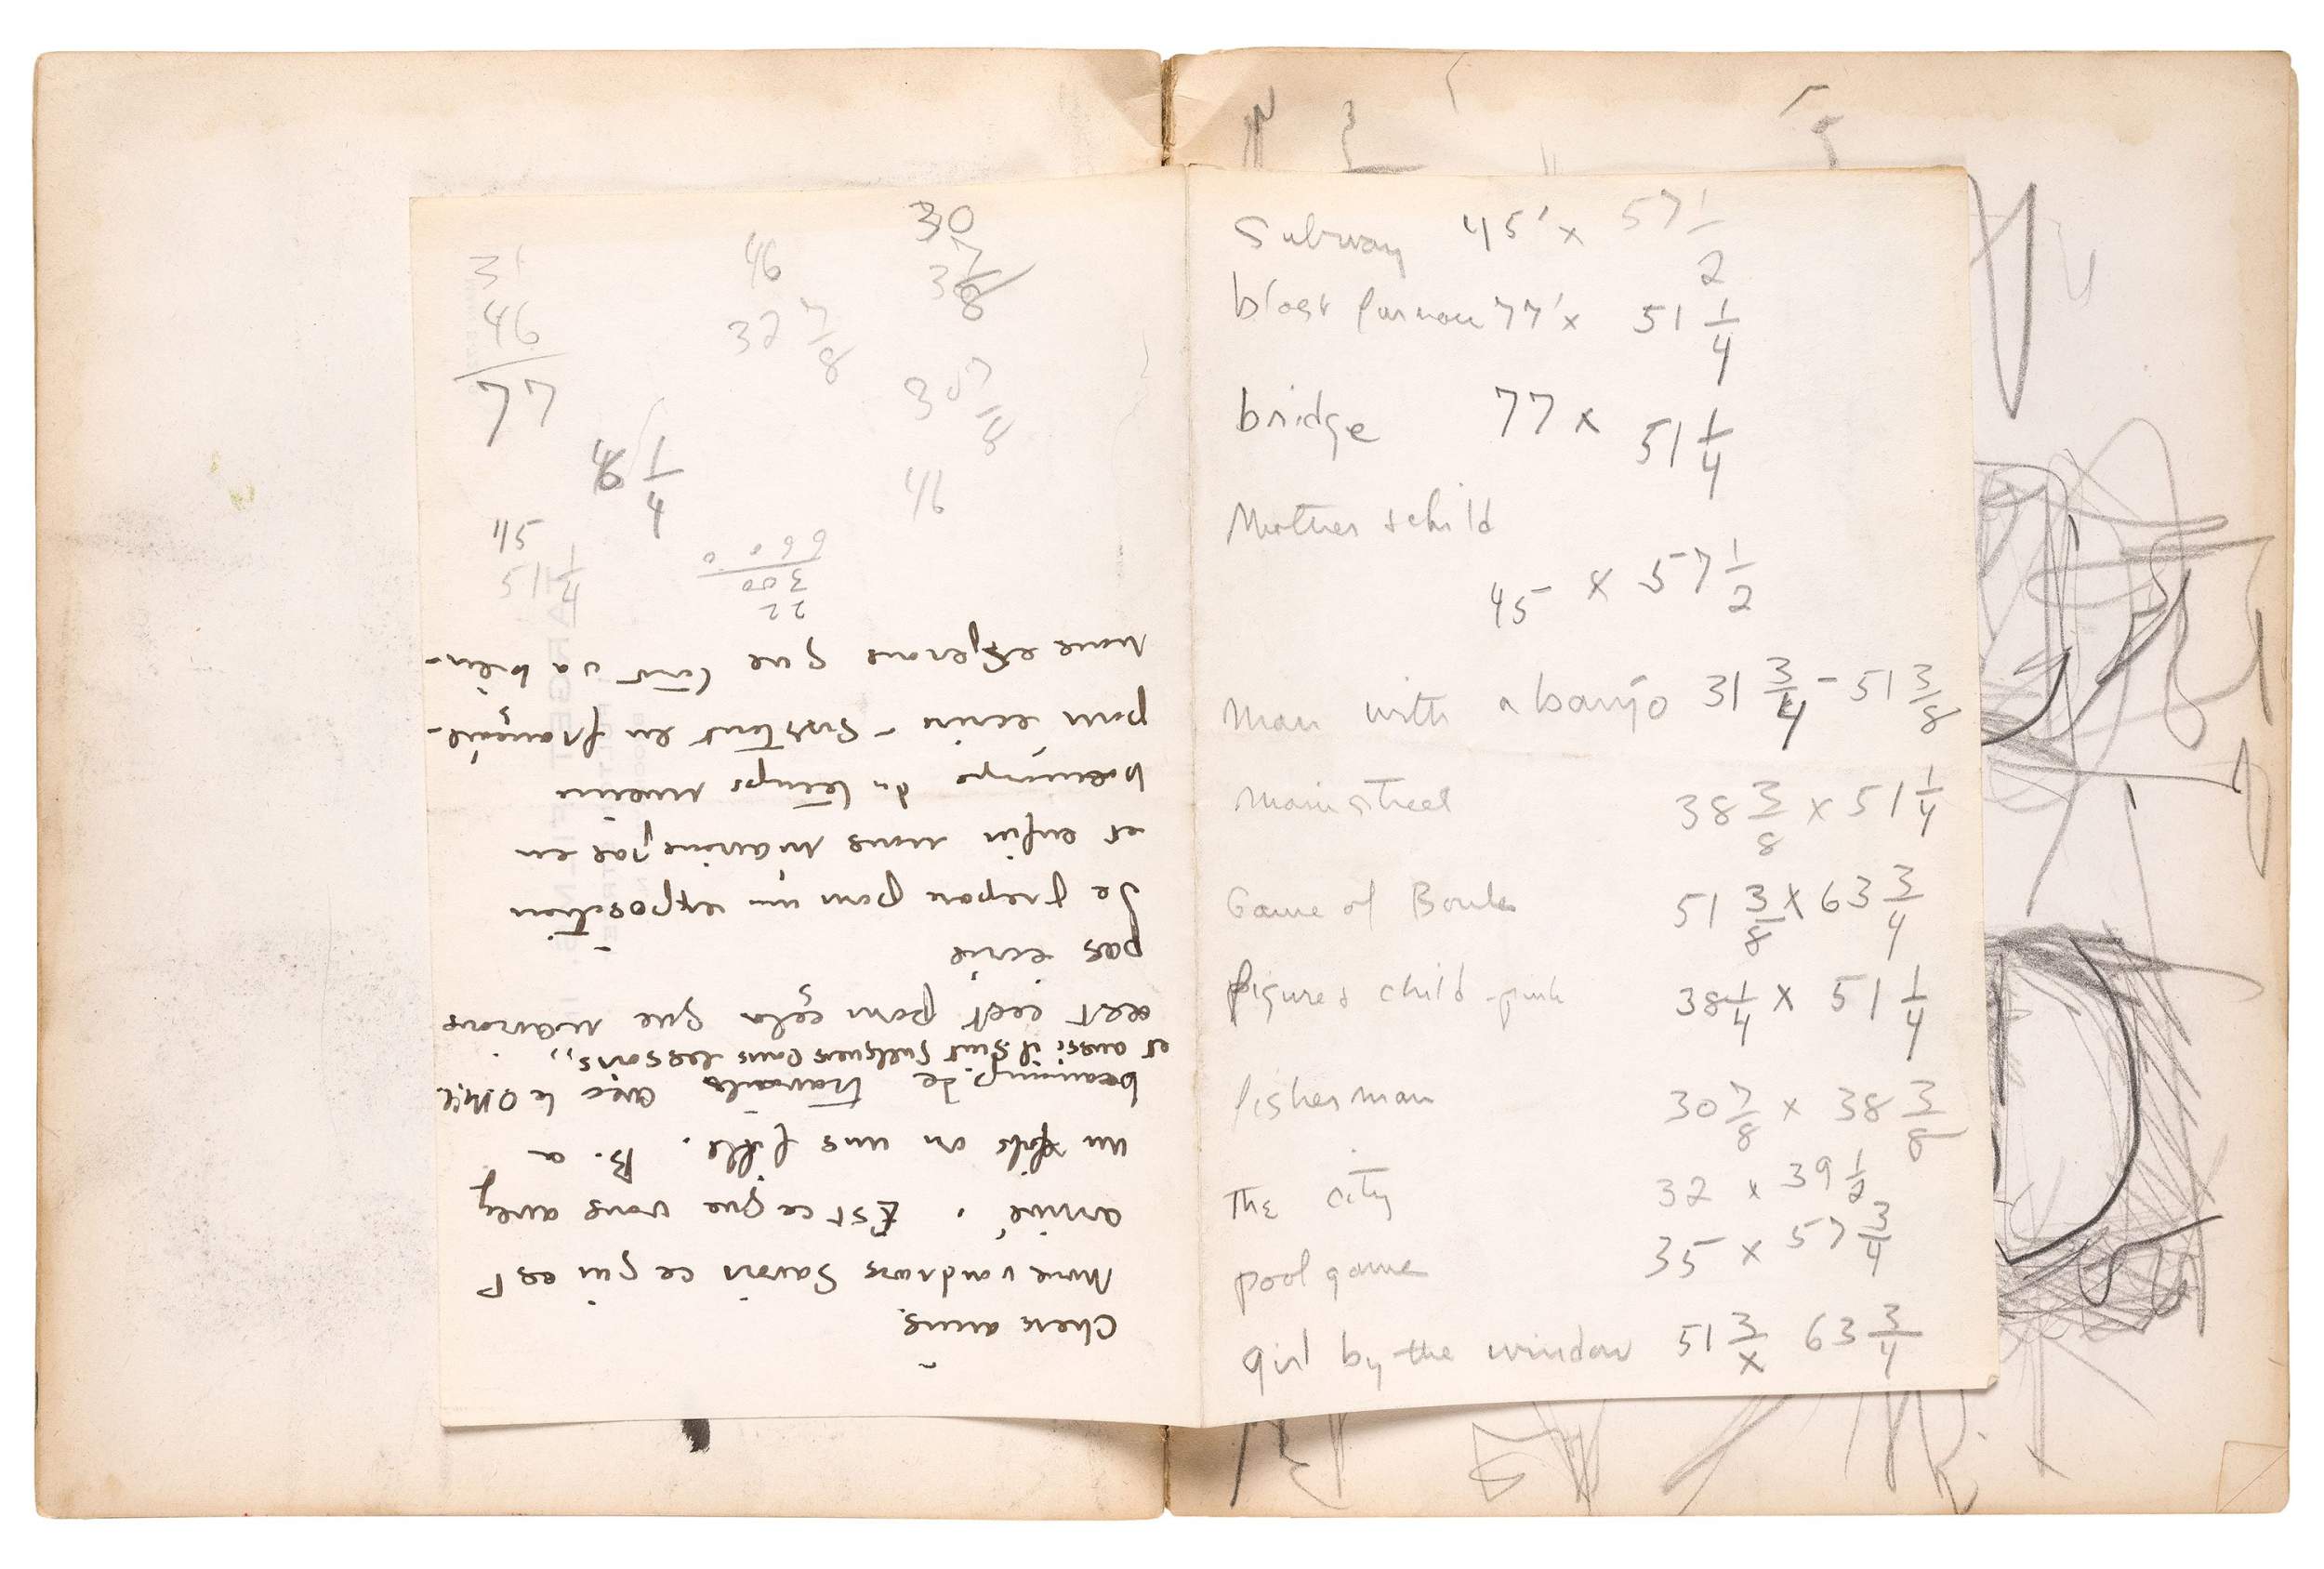 30
31 46 3 7/8
46 32 7/8
77 30 7/8
1/4 46
45
51 1/4
22
300
660 0
Chers amis,
Nous voudrions Savoir ce qui est
arrivé. Est ce que vous avez
un fils ou une fille. B. a
beaucoup de travails avec le
et aussi il fait quelques lessons,,
cest pour cela que n'avons
pas écris
Je prepare pour un exposition
et enfin nous
beaucoup du temps
pour ecrire - Surtout en français -
Nous esperons que tout va bien -
Subway 45' x 57 1/2
blast furnace 77' x 51 1/4
bridge 77 x 51 1/4
Mother & child
45 x 57 1/2
Man with a banjo 31 3/4 - 51 3/8
Main street 38 3/8 x 51 1/4
Game of Boule 51 3/8 x 63 3/4
figure & child - pink 38 1/4 x 51 1/4
fisherman 30 7/8 x 38 3/8
The city 32 x 39 1/2
pool game 35 x 57 3/4
girl by the window 51 3/x 63 3/4